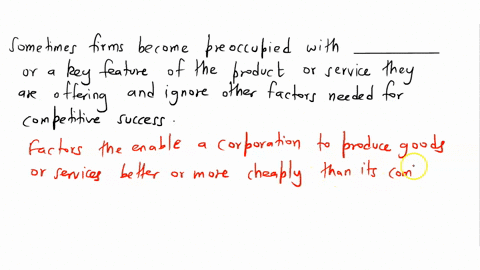 Sometimes firms become preoccupied with __________
or a key feature of the product or service they
are offering and ignore other factors needed for
competitive success.
Factors the enable a corporation to produce goods
or services better or more cheaply than its com